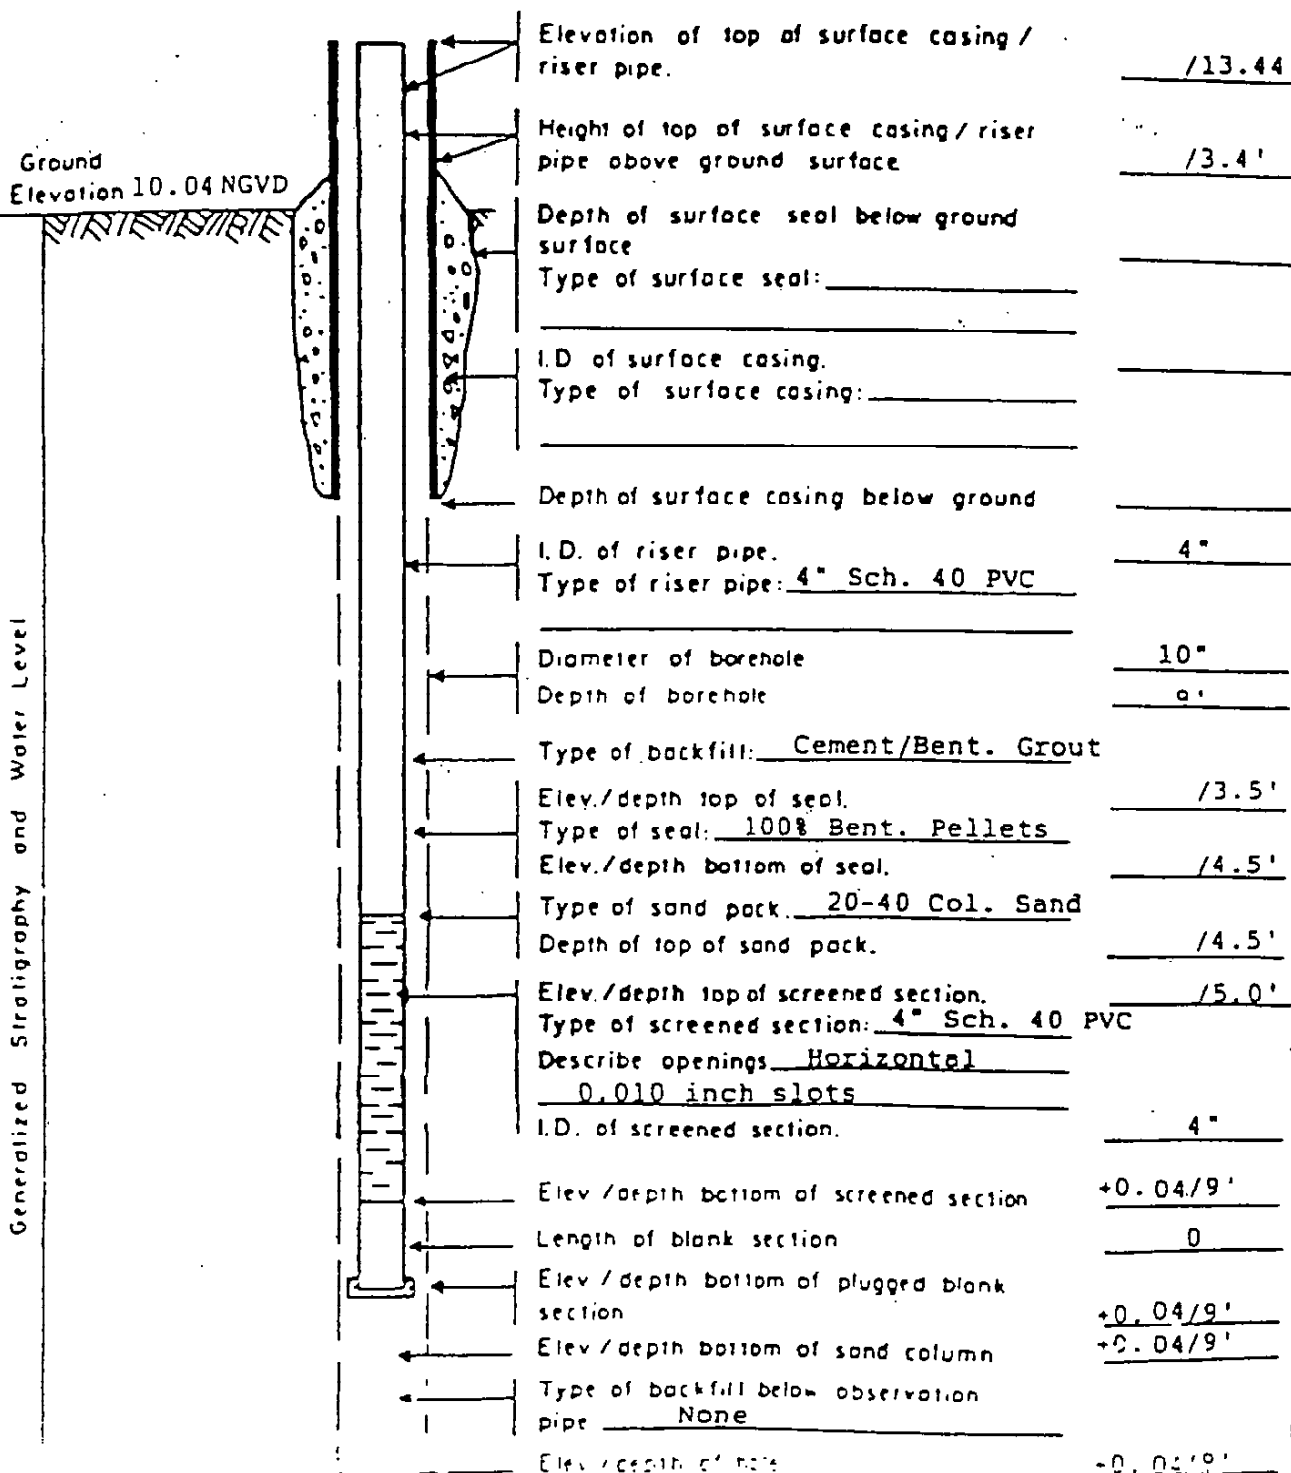 Elevation of top of surface casing /
riser pipe. /13.44
Height of top of surface casing / riser
pipe above ground surface /3.4'
Ground
Elevation 10.04 NGVD
Depth of surface seal below ground
surface
Type of surface seal:
I.D of surface casing.
Type of surface casing:
Depth of surface casing below ground
I.D. of riser pipe. 4"
Type of riser pipe: 4" Sch. 40 PVC
Diameter of borehole 10"
Depth of borehole 9'
Type of backfill: Cement/Bent. Grout
Elev./depth top of seal. /3.5'
Type of seal: 100% Bent. Pellets
Elev./depth bottom of seal. /4.5'
Type of sand pack. 20-40 Col. Sand
Depth of top of sand pack. /4.5'
Elev./depth top of screened section. /5.0'
Type of screened section: 4" Sch. 40 PVC
Describe openings Horizontal
0.010 inch slots
I.D. of screened section. 4"
Elev /depth bottom of screened section +0.04/9'
Length of blank section 0
Elev /depth bottom of plugged blank
section +0.04/9'
Elev /depth bottom of sand column +0.04/9'
Type of backfill below observation
pipe None
Elev /depth of hole +0.04/9'
Generalized Stratigraphy and Water Level